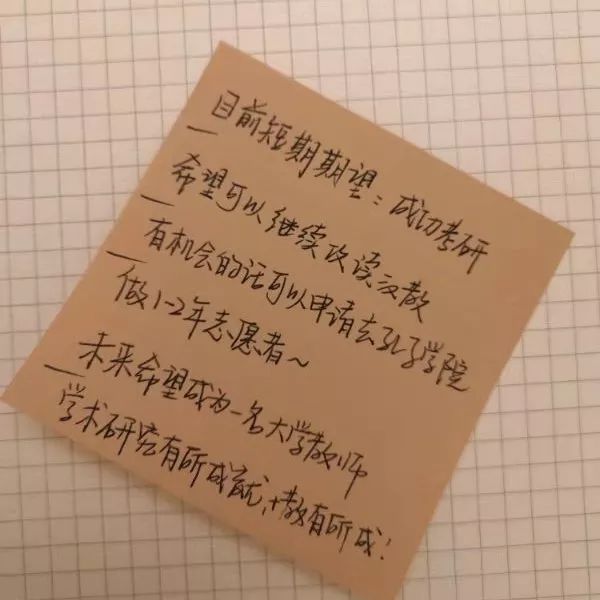 目前短期期望：成功考研
— 希望可以继续攻读汉教
— 有机会的话可以申请去孔子学院
做1-2年志愿者~
— 未来希望成为一名大学教师
学术研究有所成就，教有所成！